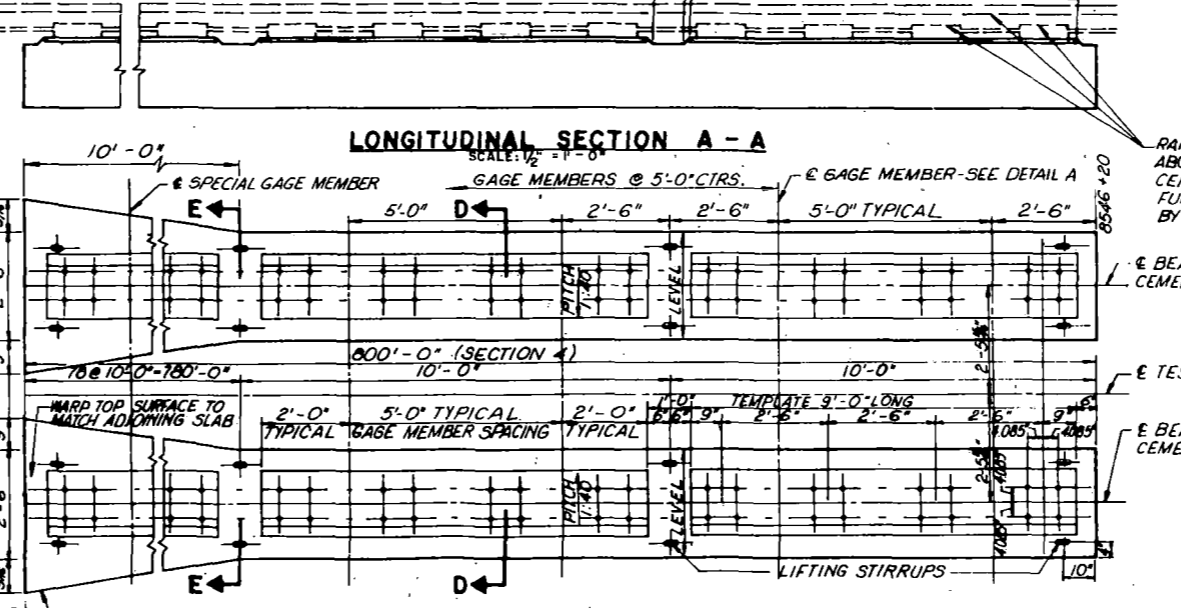 LONGITUDINAL SECTION A - A
SCALE: 1/2" = 1'-0"
10'-0"
℄ SPECIAL GAGE MEMBER
GAGE MEMBERS @ 5'-0" CTRS.
℄ GAGE MEMBER-SEE DETAIL A
8546 + 20
E
5'-0"
D
2'-6"
2'-6"
5'-0" TYPICAL
2'-6"
PITCH
1:40
LEVEL
℄ BEA
CEME
800'-0" (SECTION 4)
78 @ 10'-0"=780'-0"
10'-0"
10'-0"
℄ TES
WARP TOP SURFACE TO
MATCH ADJOINING SLAB
2'-0"
TYPICAL
5'-0" TYPICAL
GAGE MEMBER SPACING
2'-0"
TYPICAL
1'-0"
6" 6"
9"
TEMPLATE 9'-0" LONG
2'-6"
2'-6"
2'-6"
9"
6"
4.085"
4.085"
℄ BEA
CEME
PITCH
1:40
LEVEL
4.085"
4.085"
E
D
LIFTING STIRRUPS
4"
10"